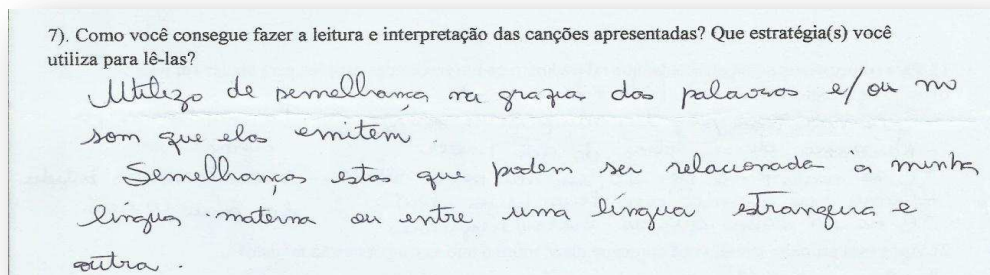 7). Como você consegue fazer a leitura e interpretação das canções apresentadas? Que estratégia(s) você
utiliza para lê-las?
Utilizo de semelhança na grafia das palavras e/ou no
som que elas emitem
Semelhanças estas que podem ser relacionada a minha
língua materna ou entre uma língua estrangeira e
outra.